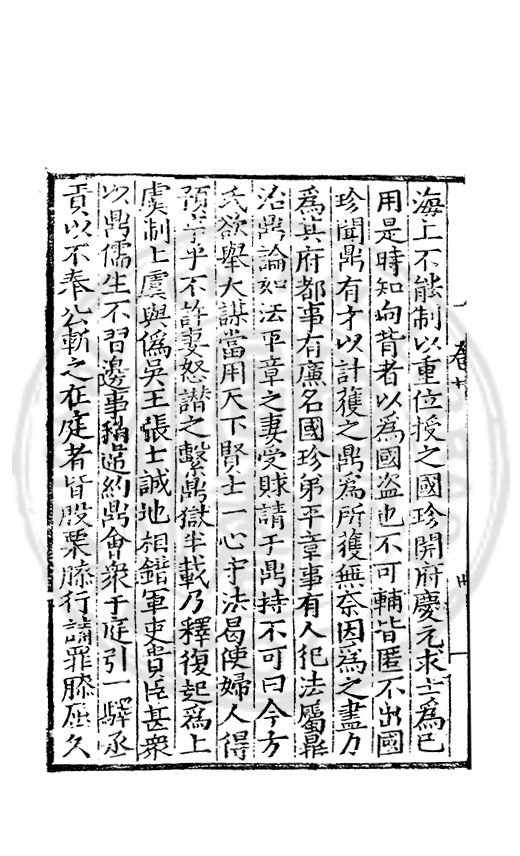 海上不能制以重位授之國珍開府慶元求士爲己
用是時知向背者以爲國盗也不可輔皆匿不出國
珍聞鼎有才以計獲之鼎爲所獲無奈因爲之盡力
爲其府都事有廉名國珍弟平章事有人犯法屬鼎
治鼎論如法平章之妻受賕請于鼎持不可曰今方
氏欲舉大謀當用天下賢士一心守法曷使婦人得
預事乎不許妻怒譛之繫鼎獄半載乃釋復起爲上
虞制上虞與僞吳王張士誠地相錯軍吏貴臣甚衆
以鼎儒生不習邊事稍違約鼎會衆于庭引一驛丞
責以不奉公斬之在庭者皆股栗膝行請罪膝屈久
卷廿